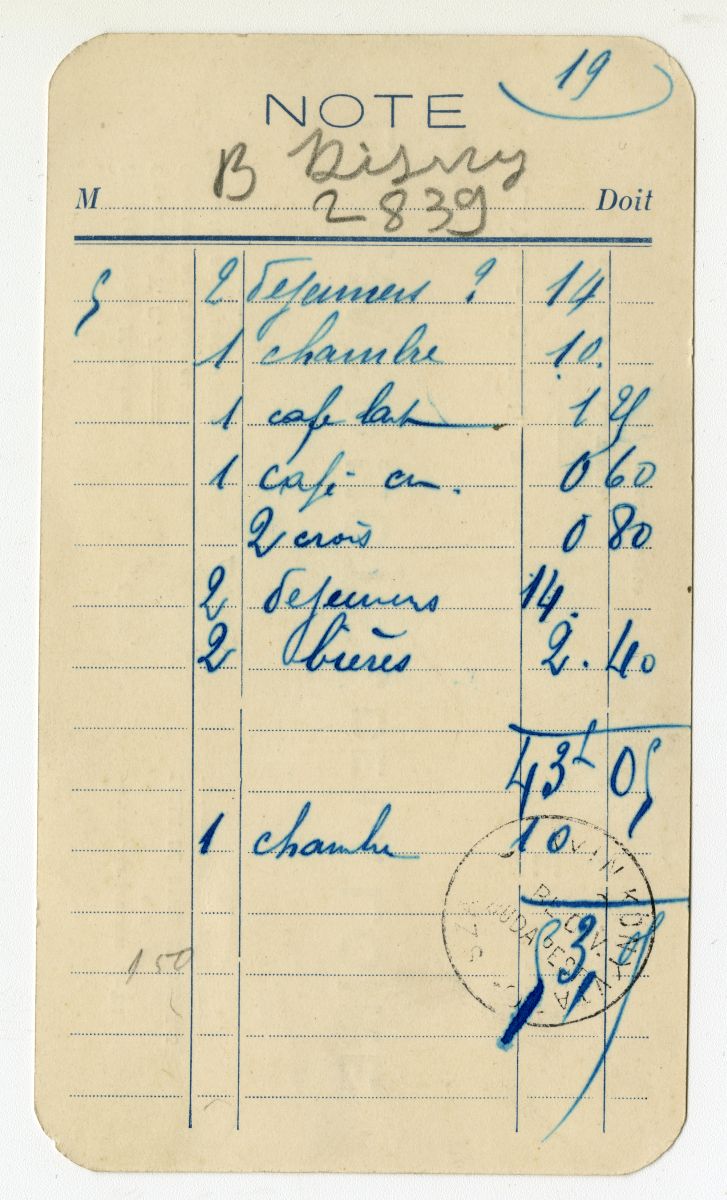 19
NOTE
B
M 2839 Doit
5 2 Dejeuners ? 14
1 chambre 10.
1 café lait 1 25
1 café cr. 0 60
2 crois 0 80
2 Dejeuners 14.
2 bières 2.40
43 f 05
1 chambre 10
53 05
BUDAPEST
150